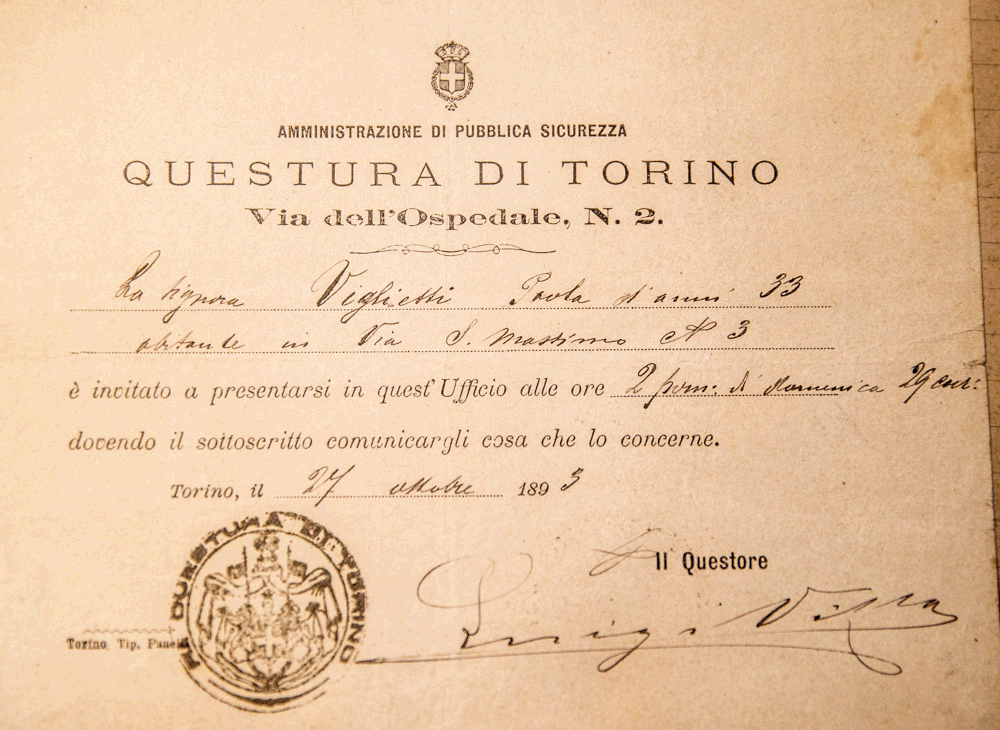 AMMINISTRAZIONE DI PUBBLICA SICUREZZA
QUESTURA DI TORINO
Via dell'Ospedale, N. 2.
La signora Viglietti Paola d'anni 33
abitante in Via S. Massimo N 3
è invitato a presentarsi in quest'Ufficio alle ore 2 pom: di domenica 29 corr:
dovendo il sottoscritto comunicargli cosa che lo concerne.
Torino, il 27 ottobre 1893
QUESTURA DI TORINO
Il Questore
Luigi
Torino, Tip.